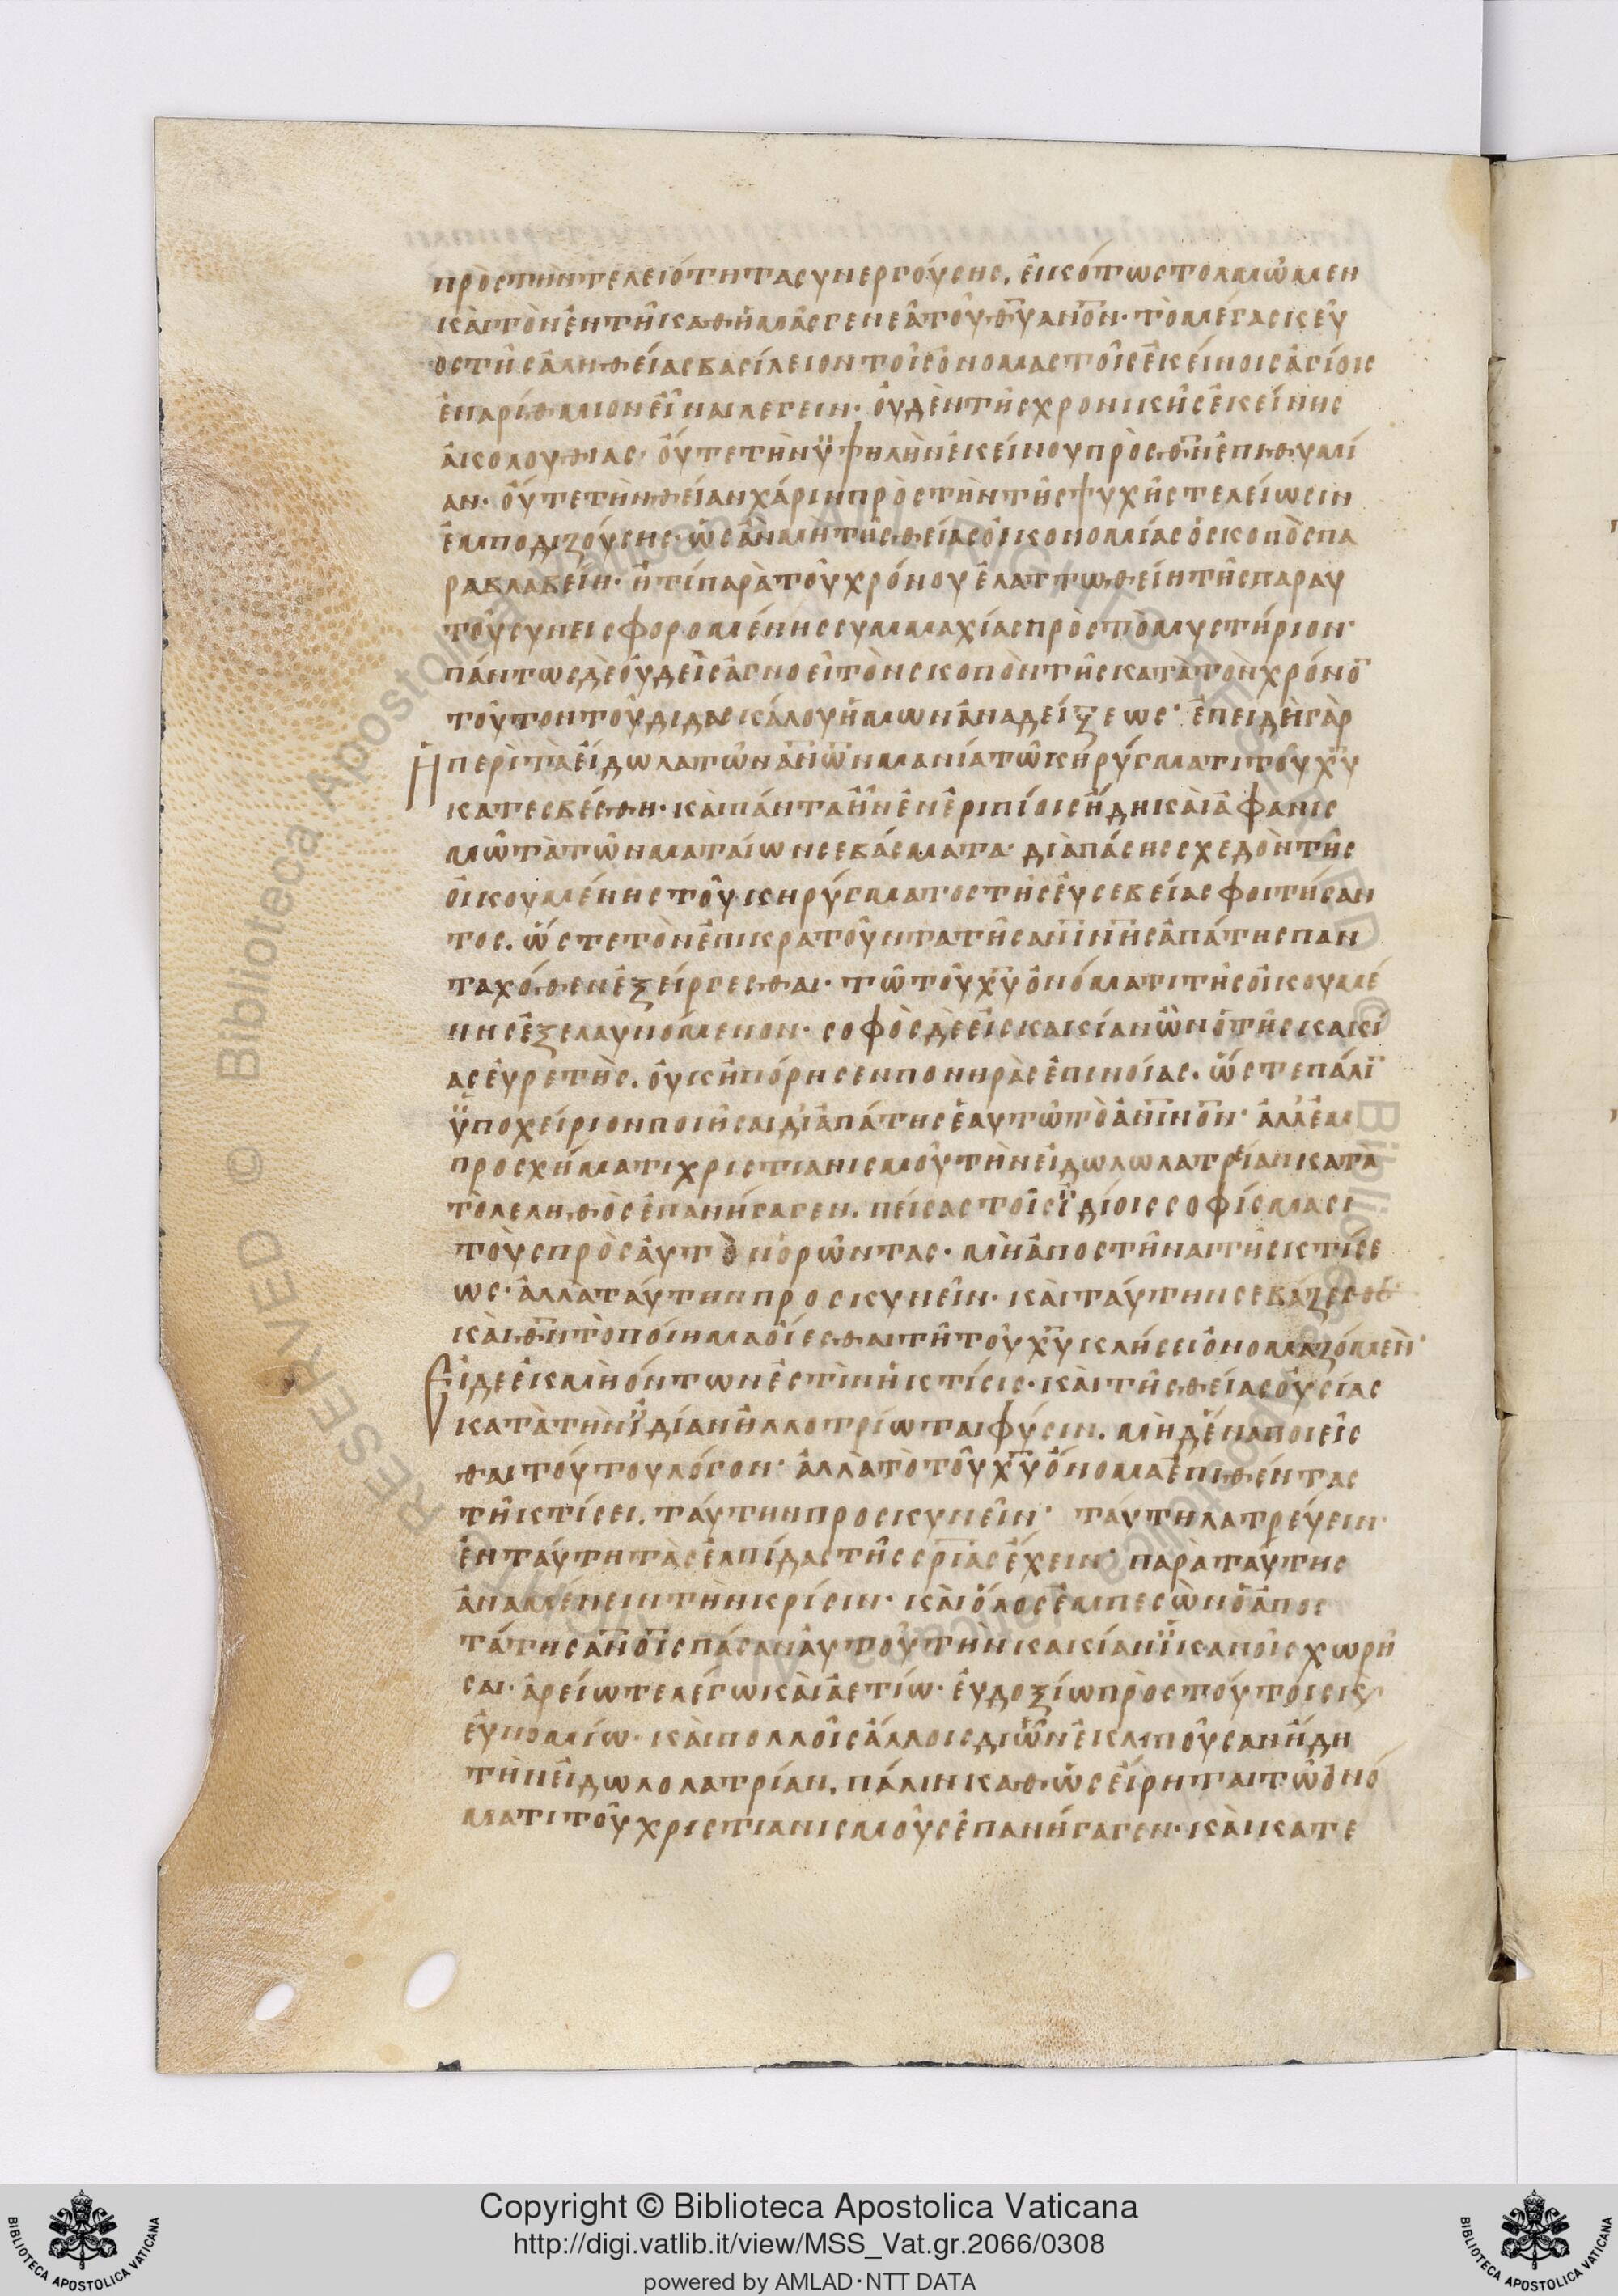 πρὸς τὴν τελειότητα συνεργούσης. εἰκότως τολμῶμεν
καὶ τὸν ἐν τῇ καθ ἡμᾶς γενεᾷ τοῦ θυ ανον· τὸ μέγα σκεῦ
ος τῆς ἀληθείας βασίλειον τοῖς ὀνομαστοῖς ἐκείνοις ἁγίοις
ἐναρίθμιον εἶναι λέγειν· οὐδὲν τῆς χρονικῆς ἐκείνης
ἀκολουθίας· οὔτε τὴν ϋψηλὴν ἐκείνου πρὸς θν ἐπιθυμί
αν· οὔτε τὴν θείαν χάριν πρὸς τὴν τῆς ψυχῆς τελείωσιν
ἐμποδιζούσης· ὡς ἂν μὴ τῆς θείας οἰκονομίας ὁ σκοπὸς πα
ραβλαβείη· ἤ τί παρὰ τοῦ χρόνου ἐλαττωθείη τῆς παραυ
τοῦ συνεισφορομένης συμμαχίας πρὸς τὸ μυστήριον·
πάντως δὲ οὐδεὶς ἀγνοεῖ τὸν σκοπὸν τῆς κατὰ τὸν χρόνο
τοῦτον τοῦ διδασκάλου ἡμων ἀναδείξεως· ἐπειδὴ γὰρ
ἡ περὶ τὰ εἴδωλα τῶν ανων μανία τῶ κηρύγματι τοῦ χυ
κατεσβέσθη· καὶ πάντα ἦν ἐν ἐριπίοις ἤδη καὶ ἀφανισ
μῶ τὰ τῶν ματαίων σεβάσματα· διὰ πάσης σχεδὸν τῆς
οἰκουμένης τοῦ κηρύγματος τῆς εὐσεβείας φοιτήσαν
τος. ὥστε τὸν ἐπικρατοῦντα τῆς ανινης ἀπάτης παν
ταχόθεν ἐξείργεσθαι· τῶ τοῦ χυ ὀνόματι τῆς οἰκουμέ
νης ἐξελαυνόμενον· σοφὸς δὲ εἰς κακίαν ὢν ὁ τῆς κακί
ας εὑρετὴς. οὐκ ἠπόρησεν πονηρᾶς ἐπινοίας. ὥστε πάλι
ϋποχείριον ποιῆσαι δι ἀπάτης ἑαυτῶ τὸ ανινον· ἀλλ ἐμ
προσχήματι χριστιανισμοῦ τὴν εἰδωλωλατρείαν κατα
τὸ λεληθὸς ἐπανήγαγεν. πείσας τοῖς ϊδίοις σοφίσμασι
τοὺς πρὸς αὐτὸν ὁρῶντας· μὴ ἀποστῆναι τῆς κτίσε
ως· ἀλλὰ ταύτην προσκυνεῖν· καὶ ταύτην σεβάζεσθαι
καὶ θν τὸ ποίημα οἴεσθαι τῇ τοῦ χυ κλήσει ὀνομαζόμεν·
Εἰ δε ἐκ μὴ ὄντων ἐστὶν ἡ κτίσις· καὶ τῆς θείας οὐσίας
κατὰ τὴν ϊδίαν ἠλλοτρίωται φύσιν. μὴδένα ποιεῖς
θαι τούτου λόγον· ἀλλὰ τὸ τοῦ χυ ὄνομα ἐπιθέντας
τῇ κτίσει. ταύτην προσκυνεῖν· ταύτη λατρεύειν·
ἐν ταύτη τὰς ἐλπίδας τῆς σριας ἔχειν· παρὰ ταύτης
ἀναμένειν τὴν κρίσιν· καὶ ὅλος ἐμπεσὼν ὁ ἀποσ
τάτης ανοις πάσαν αὐτοῦ τὴν κακίαν ϊκανοῖς χωρῆ
σαι· ἀρείω τε λέγω καὶ ἀετίω· εὐδοξίω πρὸς τούτοις κ
εὐνομίω· καὶ πολλοῖς ἄλλοις δι ὧν ἐκλιποῦσαν ἤδη
τὴν εἰδωλολατρίαν. πάλιν καθὼς εἴρηται τῶ ὀνό
ματι τοῦ χριστιανισμοῦς ἐπανήγαγεν· καὶ κατε
Copyright © Biblioteca Apostolica Vaticana
http://digi.vatlib.it/view/MSS_Vat.gr.2066/0308
powered by AMLAD·NTT DATA